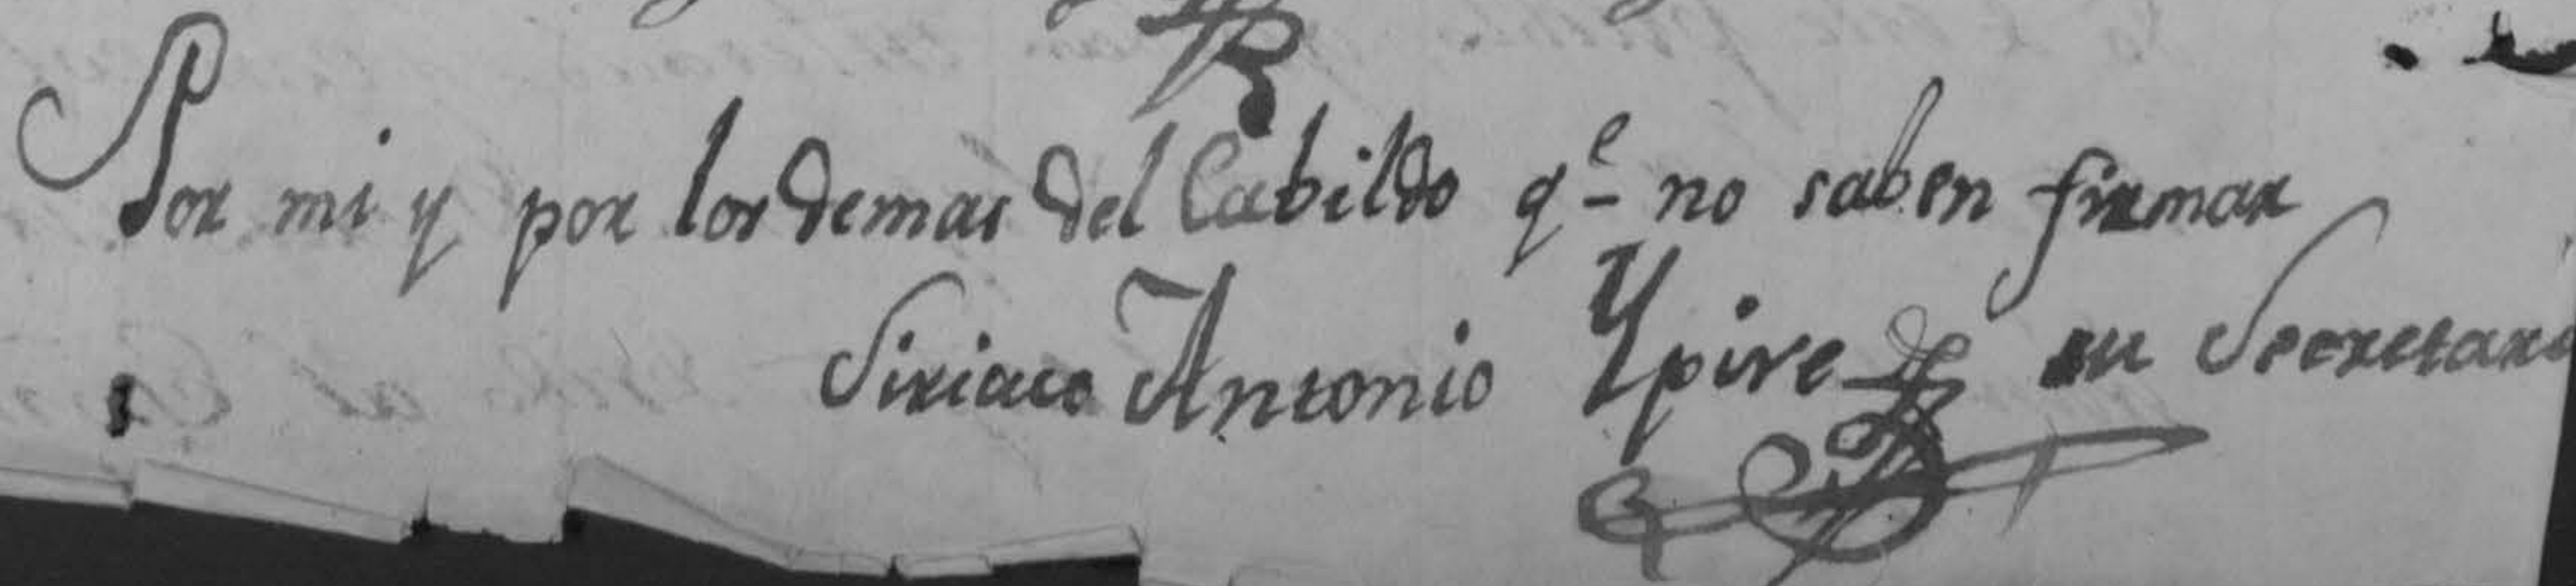 Por mi y por los demas del Cabildo qe no saben firmar
Siriaco Antonio Ypire su Secretari